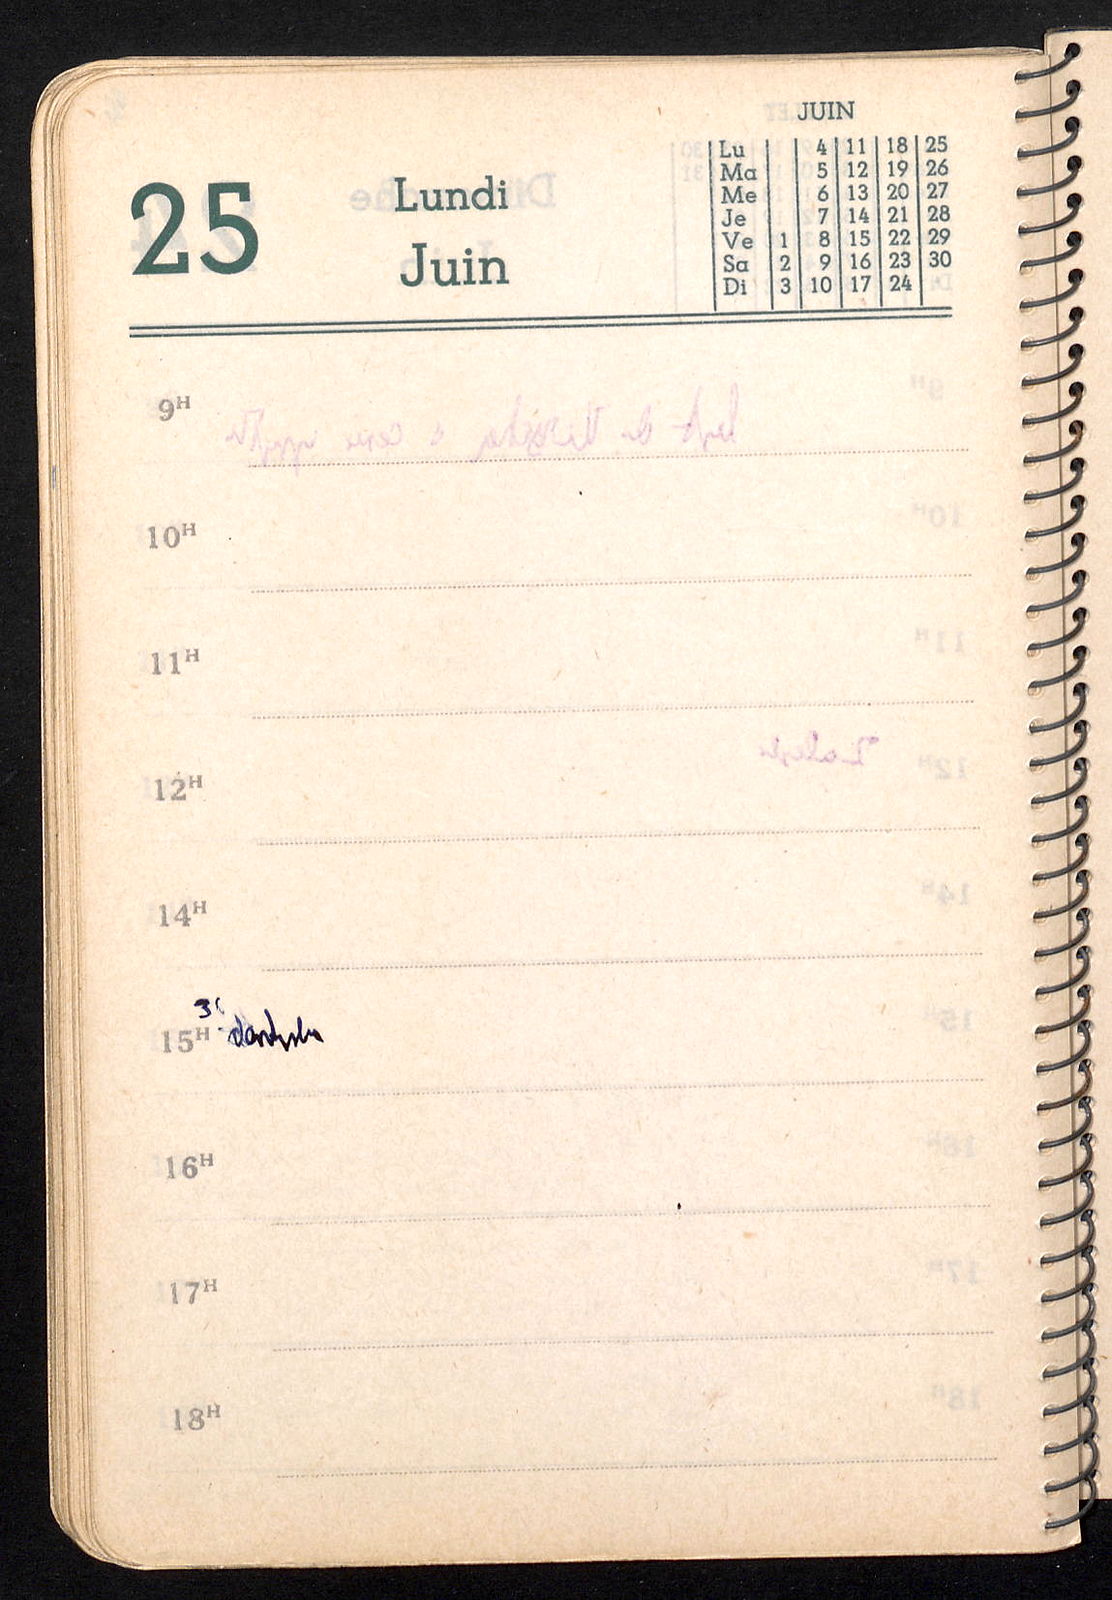 JUIN
25 Lundi
Juin
Lu 4 11 18 25
Ma 5 12 19 26
Me 6 13 20 27
Je 7 14 21 28
Ve 1 8 15 22 29
Sa 2 9 16 23 30
Di 3 10 17 24
9H
10H
11H
12H
14H
15H
16H
17H
18H